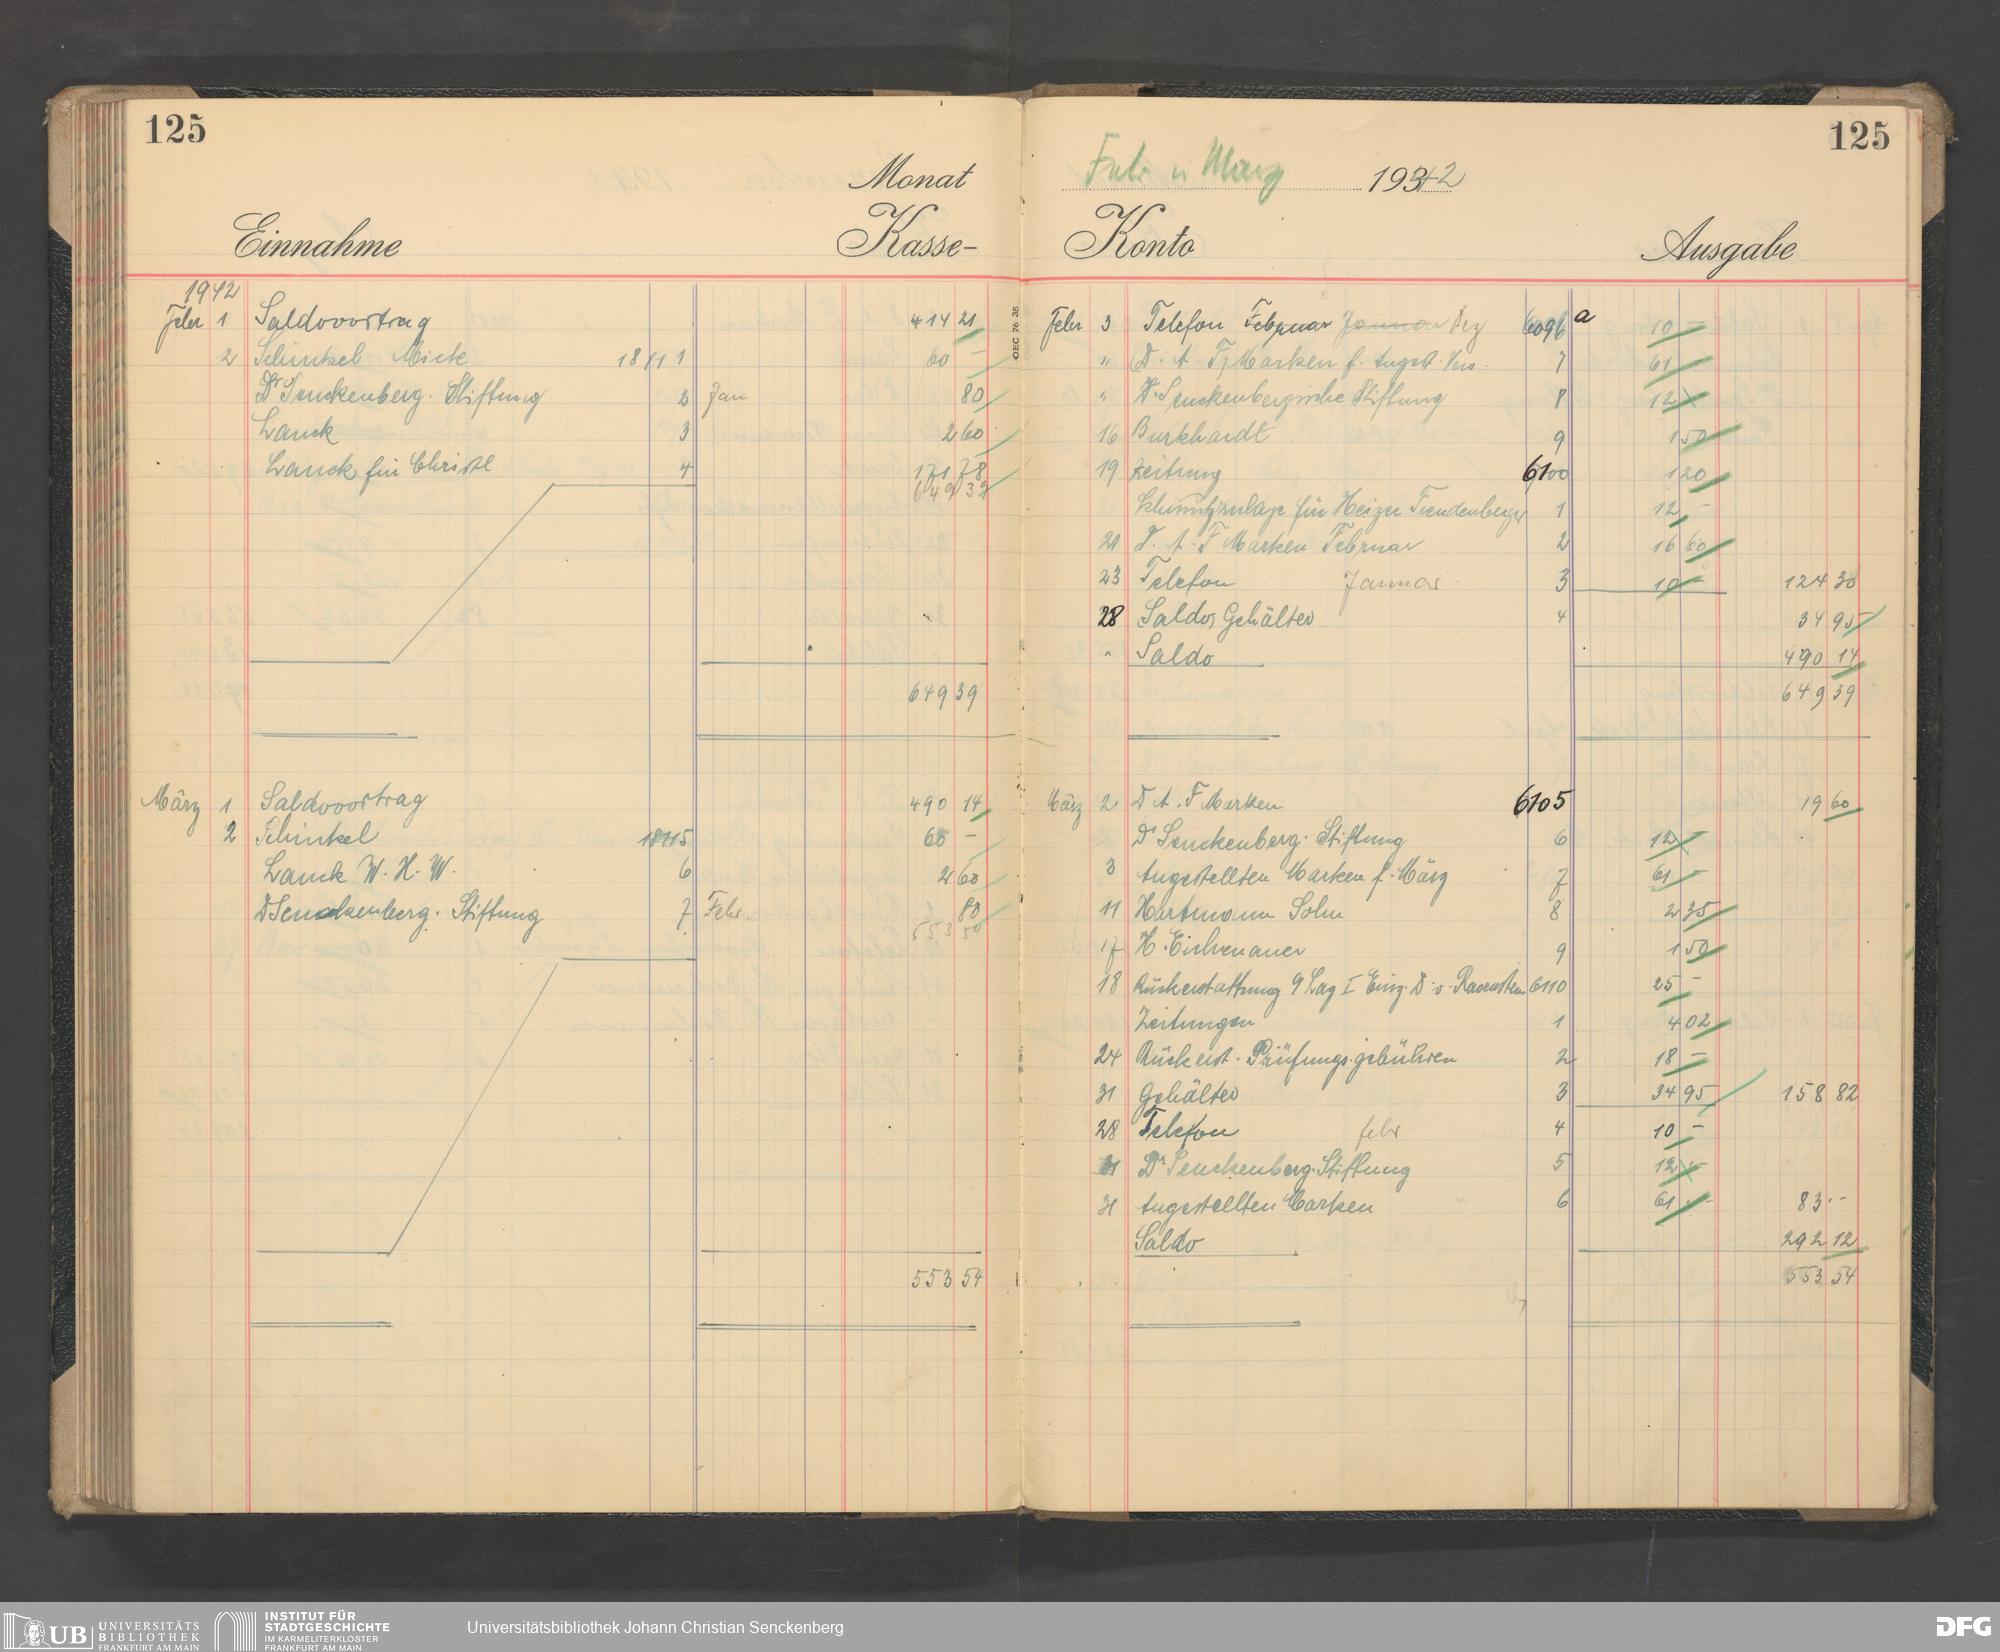 125
Monat
Einnahme Kasse-
1942
Febr 1 Saldovortrag 414 21
2 Schinkel Miete 18111 60 –
Dr Senckenberg. Stiftung 2 Jan 80
Lauck 3 2 60
Lauck für Christl 4 171 78
649 39
649 39
März 1 Saldovortrag 490 14
2 Schinkel 18115 60 –
Lauck W. H. W. 6 2 60
D Senckenberg. Stiftung 7 Febr. 80
553 54
553 54
125
Febr u März 1942
Konto Ausgabe
OEC 76 35
Febr 3 Telefon Februar Januar Dez 6096 a 10 –
" D. A. F, Marken f. Angest. Vers. 7 61 –
" Dr. Senckenbergische Stiftung 8 12 –
16 Burkhardt 9 1 50
19 Zeitung 6100 1 20
Schmutzzulage für Heizer Freudenberger 1 12 –
21 D. A. F Marken Februar 2 16 60
23 Telefon Januar 3 10 – 124 30
28 Saldo, Gehälter 4 34 95
" Saldo 490 14
649 39
März 2 D A. F Marken 6105 19 60
Dr Senckenberg. Stiftung 6 12 –
3 Angestellten Marken f. März 7 61 –
11 Hartmann Sohn 8 2 35
17 H. Eichenauer 9 1 50
18 Rückerstattung 9 Lag I Einz. D. v. Ravenstein 6110 25 –
Zeitungen 1 4 02
24 Rückerst. Prüfungsgebühren 2 18 –
31 Gehälter 3 34 95 158 82
28 Telefon febr 4 10 –
31 Dr Senckenberg. Stiftung 5 12 –
31 Angestellten Marken 6 61 – 83 –
Saldo 292 12
553 54
UB UNIVERSITÄTS
BIBLIOTHEK
FRANKFURT AM MAIN
INSTITUT FÜR
STADTGESCHICHTE
IM KARMELITERKLOSTER
FRANKFURT AM MAIN
Universitätsbibliothek Johann Christian Senckenberg
DFG